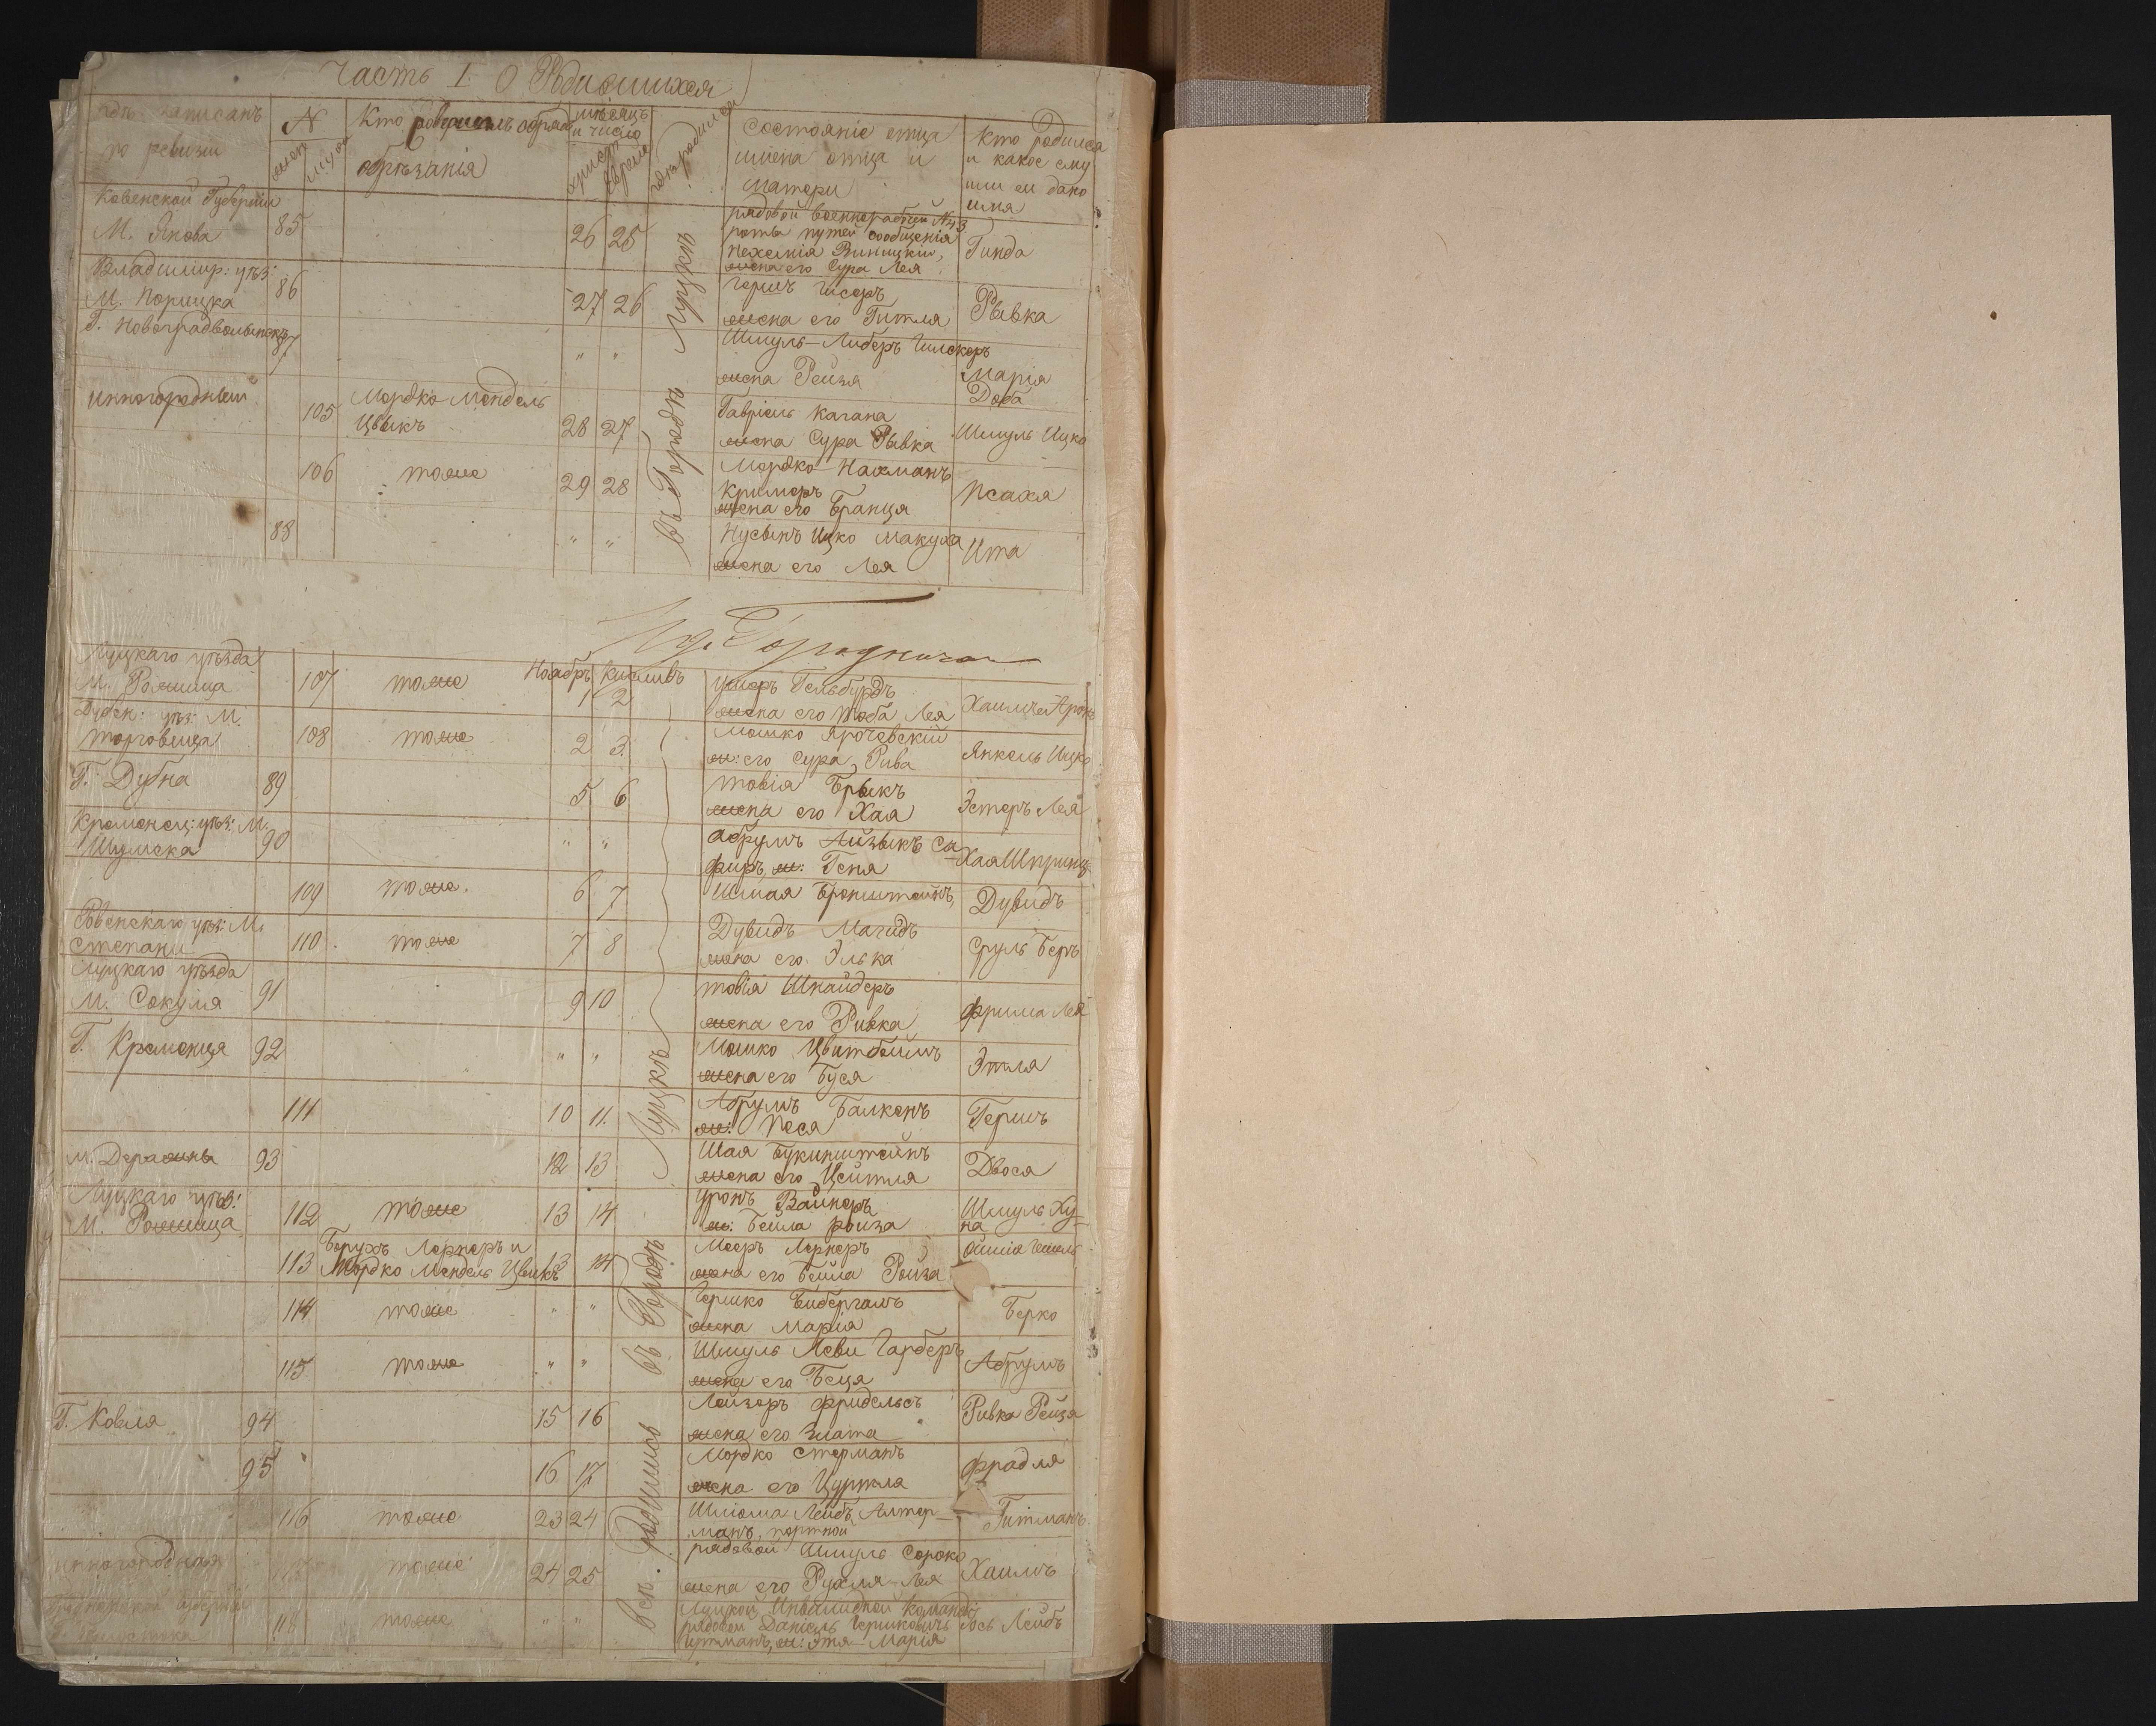 Часть I. О Родившихся
гдѣ записанъ по ревизіи
№
женс
муж
Кто совершалъ обрядъ обрѣзанія
мѣсяцъ и число
христ
еврейс
гдѣ родился
Состояніе отца имена отца и матери
Кто родился и какое ему или ей дано имя
Ковенской Губерніи
М. Янова
85
26 25
рядовой военнорабочей № 43
роты путей сообщенія
Нехемія Виницкій,
жена его Сура Лея
Гинда
Владимир: уѣз:
М. Порицка
86
27 26
Гершъ
жена его Гитля
Рывка
Г. Новоградволынскъ
87
" "
Шмуль-Либеръ
жена Рейзя
Марія
Доба
инногородный
105
Мордко Мендель
Цвыкъ
28 27
Гавріель Кагана
жена Сура Рывка
Шмуль Ицко
106
тоже
29 28
Мордко Нахманъ
Кримеръ
жена его Бранця
Псахя
88
" "
Нусынъ Ицко Макуха
жена его Лея
Ита
въ Городѣ Луцкѣ
Луцкаго уѣзда
М. Рожища
107
тоже
Ноябрь Кисливъ
1 2
Ушеръ Гельбурдъ
жена его Тоба Лея
Хаимъ Аронъ
Дубен: уѣз: М.
Торговица
108
тоже
2 3
Мошко Ярочевскій
ж: его Сура Рива
Янкель Ицко
Г. Дубна
89
5 6
Товія Брыкъ
жена его Хая
Эстеръ Лея
Кременец: уѣз: М.
Шумска
90
" "
Абрумъ Айзыкъ Са-
фиръ, ж: Геня
Хая Шпринц
109
тоже
6 7
Шмая Бронштейнъ,
Дувидъ
Ровенскаго уѣз: М.
Степани
110
тоже
7 8
Дувидъ Магидъ
жена его Элька
Сруль Беръ
Луцкаго уѣзда
М. Сокуля
91
9 10
Товія Шнайдеръ
жена его Ривка
Фрима Лея
Г. Кременця
92
" "
Мошко Цвитбеймъ
жена его Буся
Этля
111
10 11
Абрумъ Балкенъ
ж: Песя
Гершъ
М. Деражны
93
12 13
Шая Букинштейнъ
жена его Цейтля
Двося
Луцкаго уѣз:
М. Рожища
112
тоже
13 14
Уронъ Вайнеръ
ж: Бейла Роиза
Шмуль Ху-
на
113
Борухъ Лернеръ и
Мордко Мендель Цвыкъ
13 14
Мееръ Лернеръ
жена его Бейла Роиза
114
тоже
" "
Гершко Бибергамъ
жена Марія
Берко
115
тоже
" "
Шмуль Леви Гарберъ
жена его Беця
Абрумъ
Г. Ковля
94
15 16
Лейзоръ Фридельсъ
жена его Злата
Ривка Рейзя
95
16 17
Мордко Стерманъ
жена его Цуртля
Фрадля
116
тоже
23 24
Шлиома Лейбъ Алтер-
манъ, портной
Гитманъ
инногородная
тоже
24 25
рядовой Шмуль Сороко
жена его Рухля Лея
Хаимъ
Гродненской Губерніи
118
тоже
" "
Луцкой Инвалидной Команды
рядовой Даніель Гершковичъ
Гутманъ, ж: Этя Марія
Іось Лейбъ
Всѣ родились въ Городѣ Луцкѣ